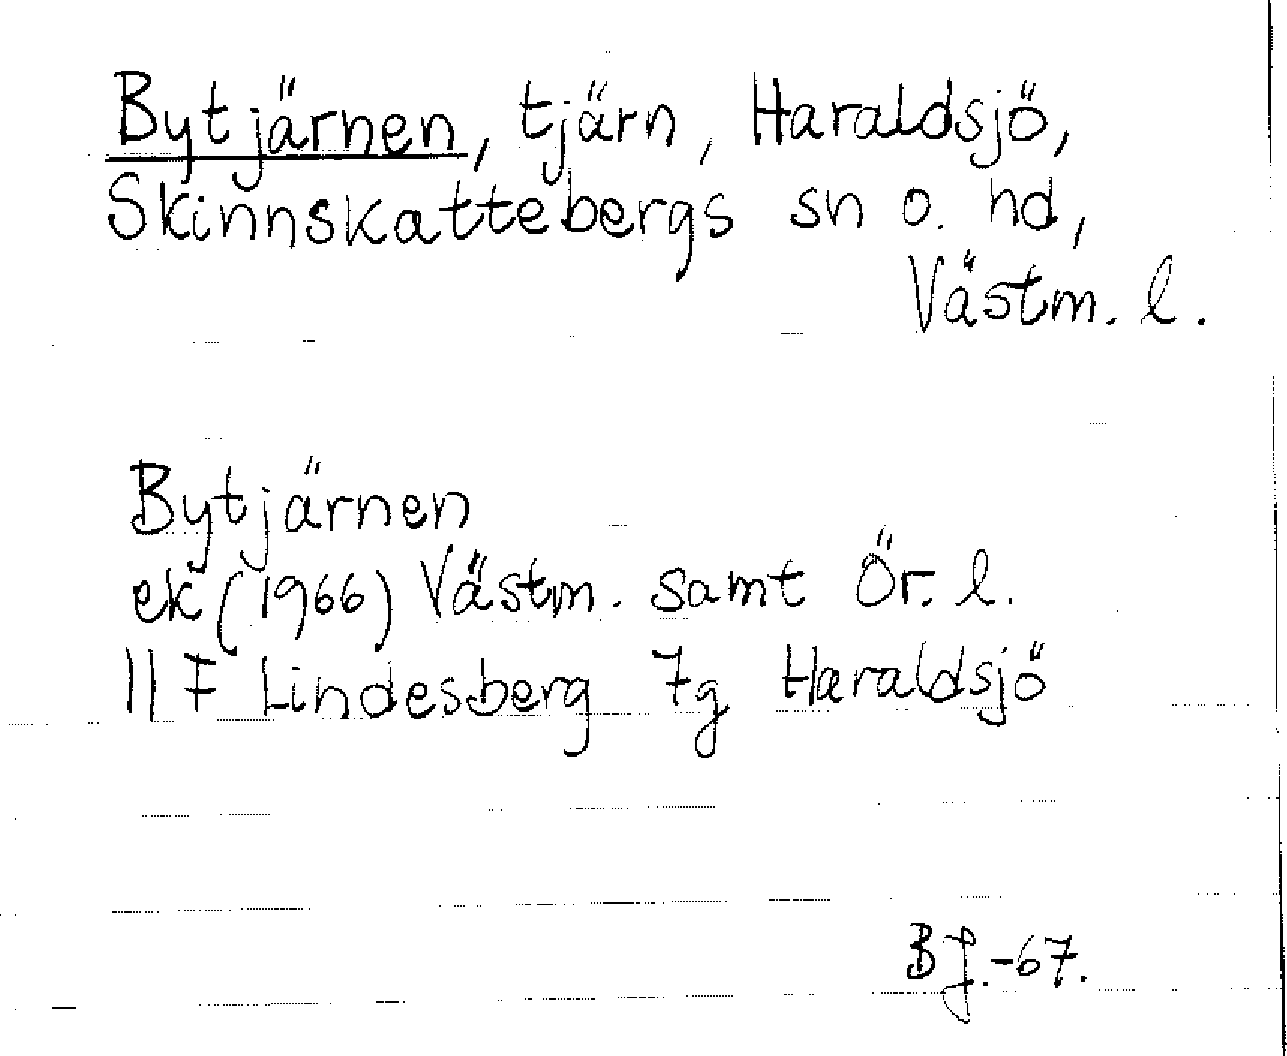 Bytjärnen, tjärn, Haraldsjö,
Skinnskattebergs sn o. hd,
Västm. l.
Bytjärnen
ek (1966) Västm. samt Ör. l.
11 F Lindesberg 7g Haraldsjö
BJ.-67.